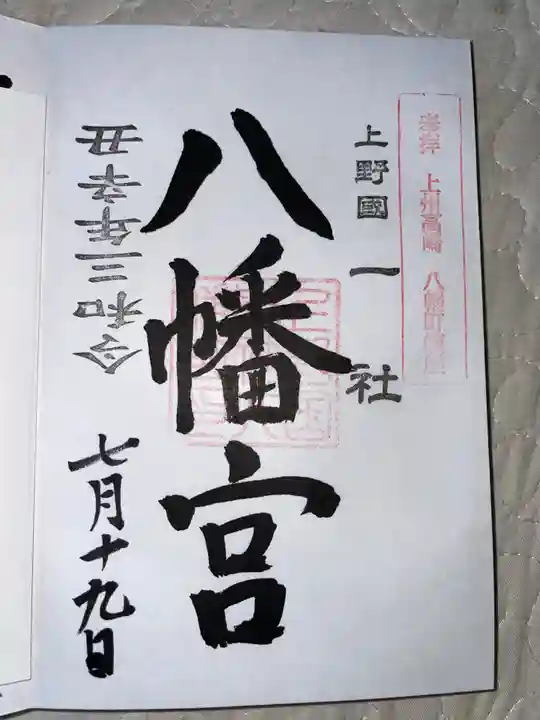 上州高崎 八幡町
上野國一社
八幡宮
令和三年辛丑
七月十九日